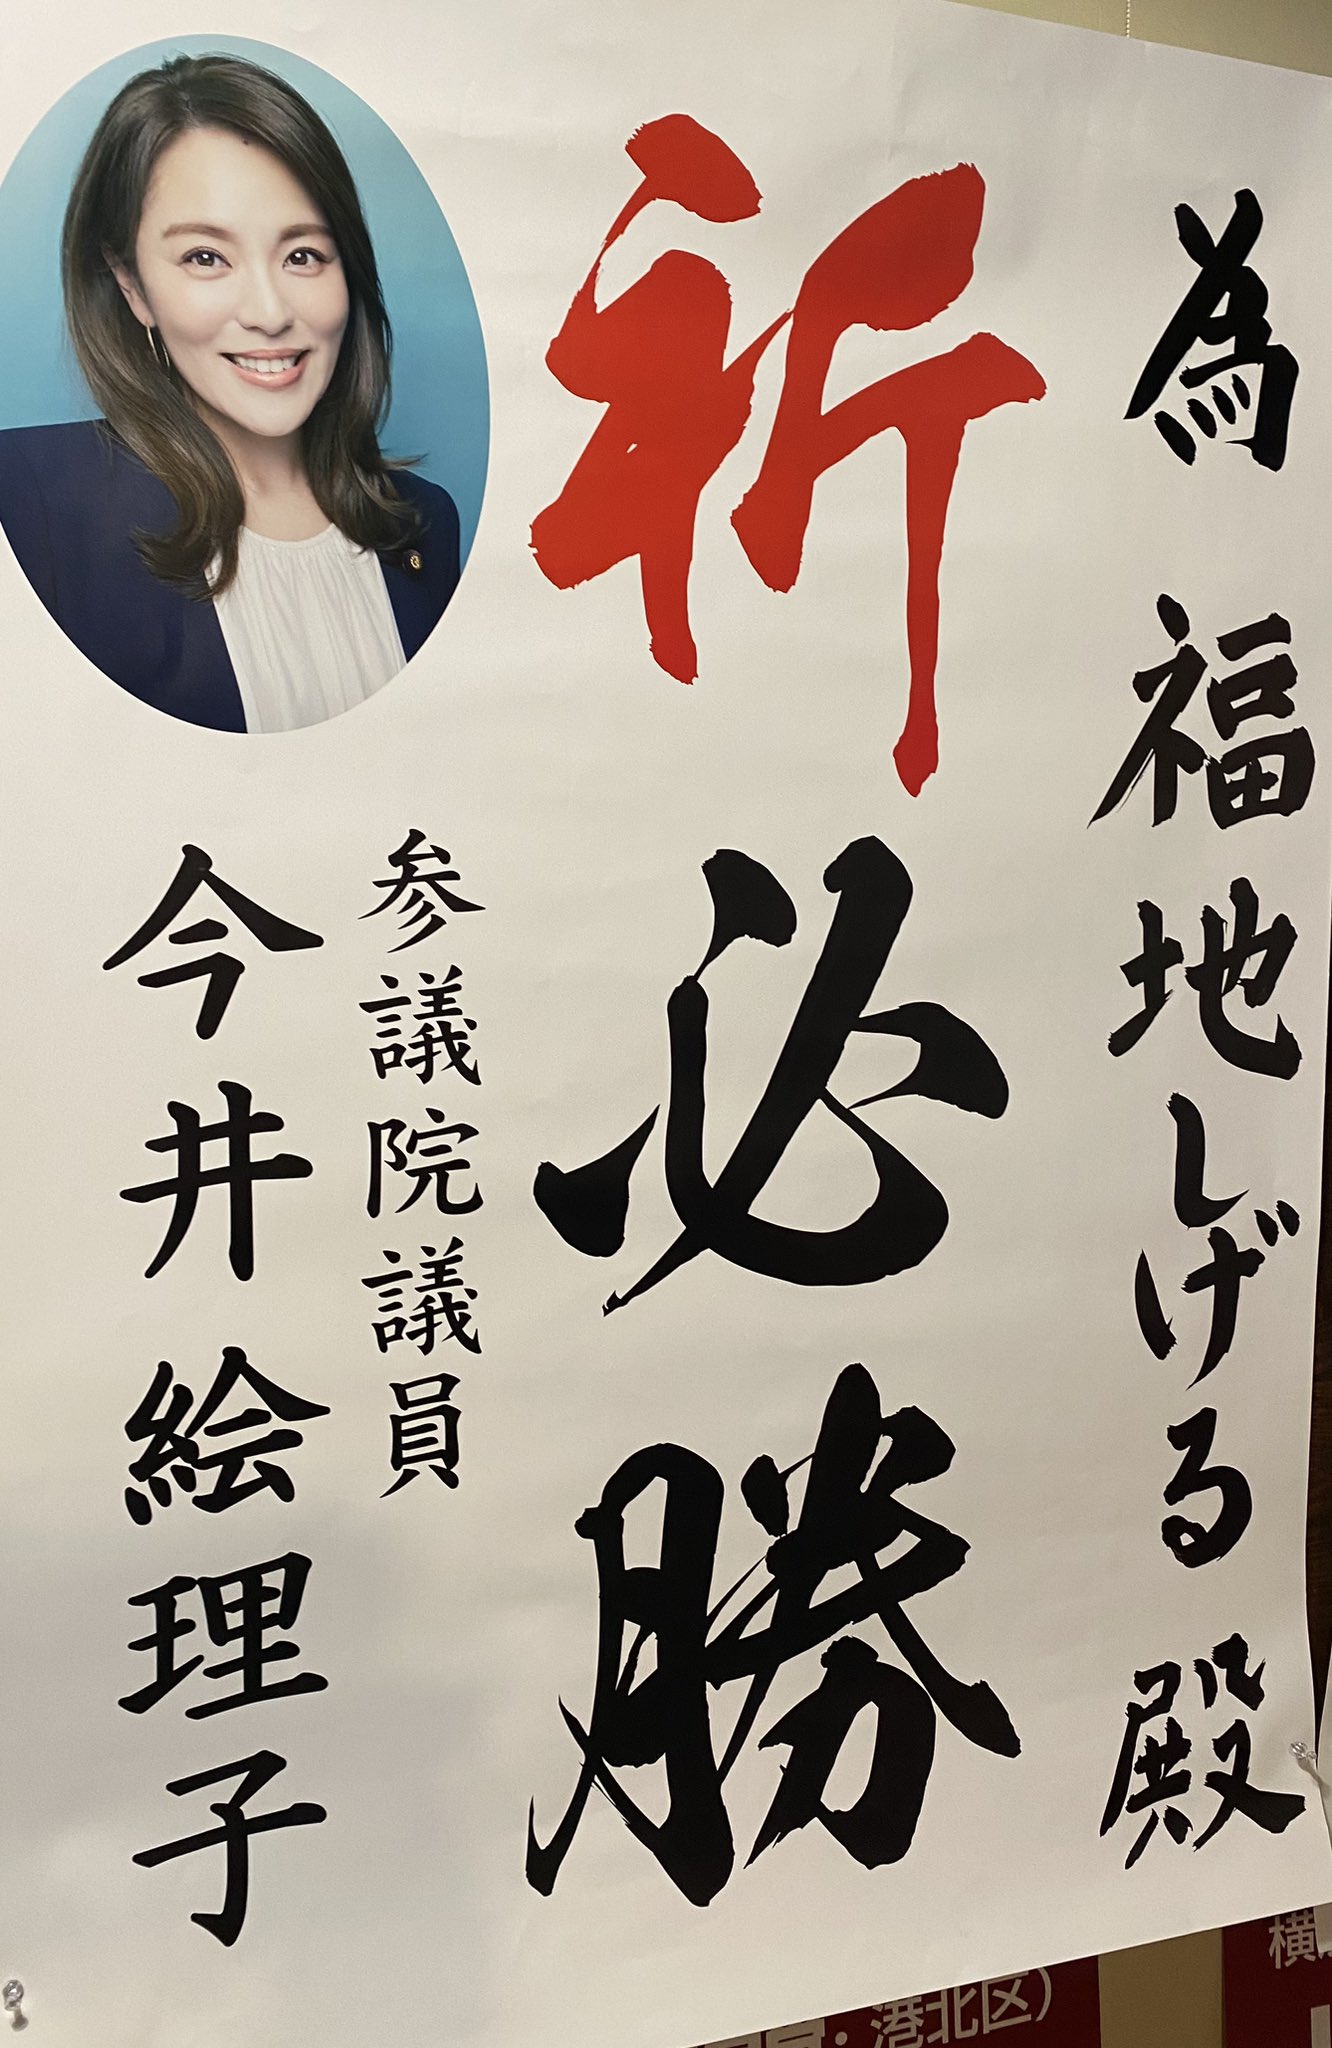 為 福地しげる 殿
祈必勝
参議院議員
今井絵理子
横
・港北区）